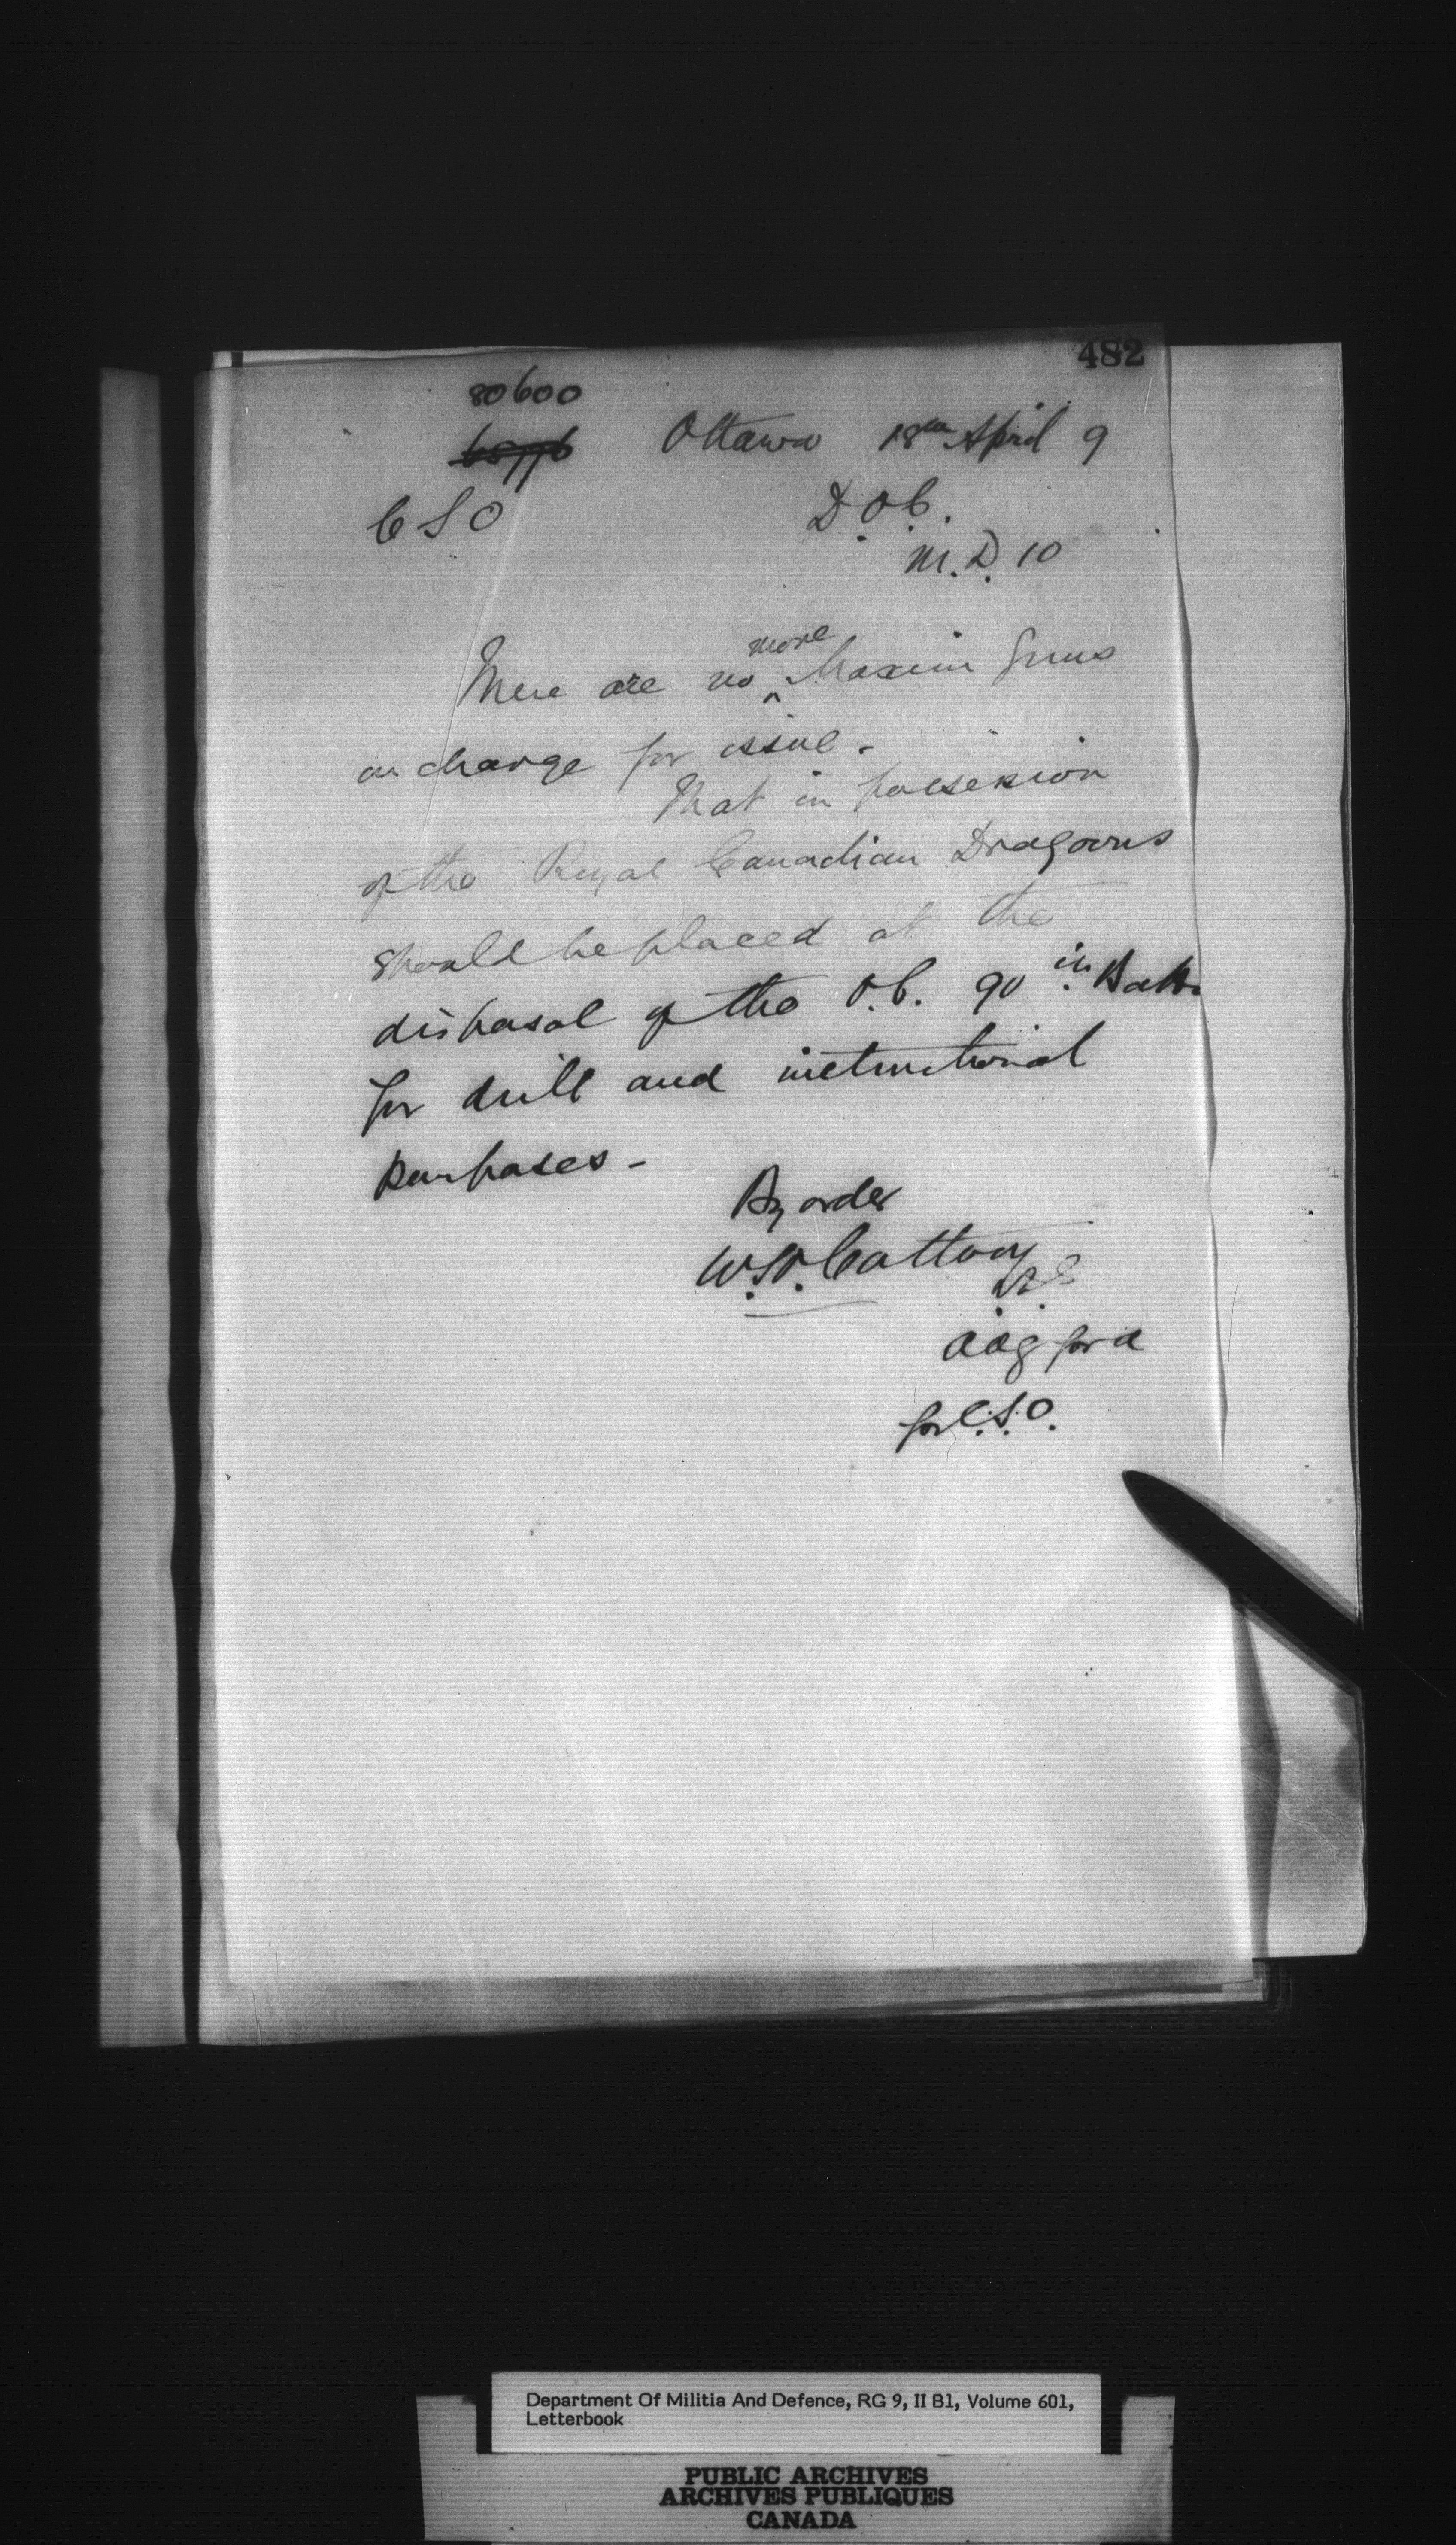 482
80600
Ottawa 18th April 9
C S O
D.O.C.
M.D. 10
more
There are no ^ Maxim Guns
on charge for issue.
That in possession
of the Royal Canadian Dragoons
should be placed at the
disposal of the O.C. 90th Batt.
for drill and instructional
purposes -
By order
W.O. Cattony
aag for a
for C.S.O.
Department Of Militia And Defence, RG 9, II B1, Volume 601,
Letterbook
PUBLIC ARCHIVES
ARCHIVES PUBLIQUES
CANADA